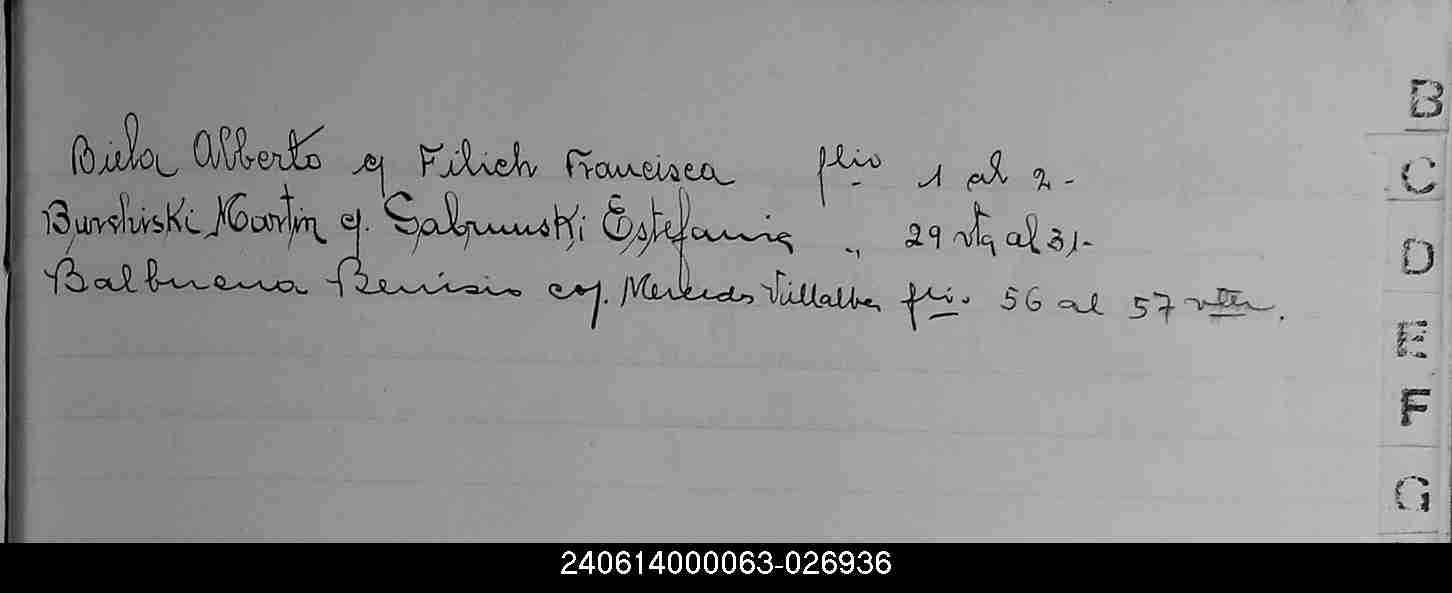 Biela Alberto y Filich Francisca flio 1 al 2-
Burshiski Martin y. Estefania „ 29 vta al 31-
Balbuena Benisio coy. Mercedes Villalba flio. 56 al 57 vta.
B
C
D
E
F
G
240614000063-026936